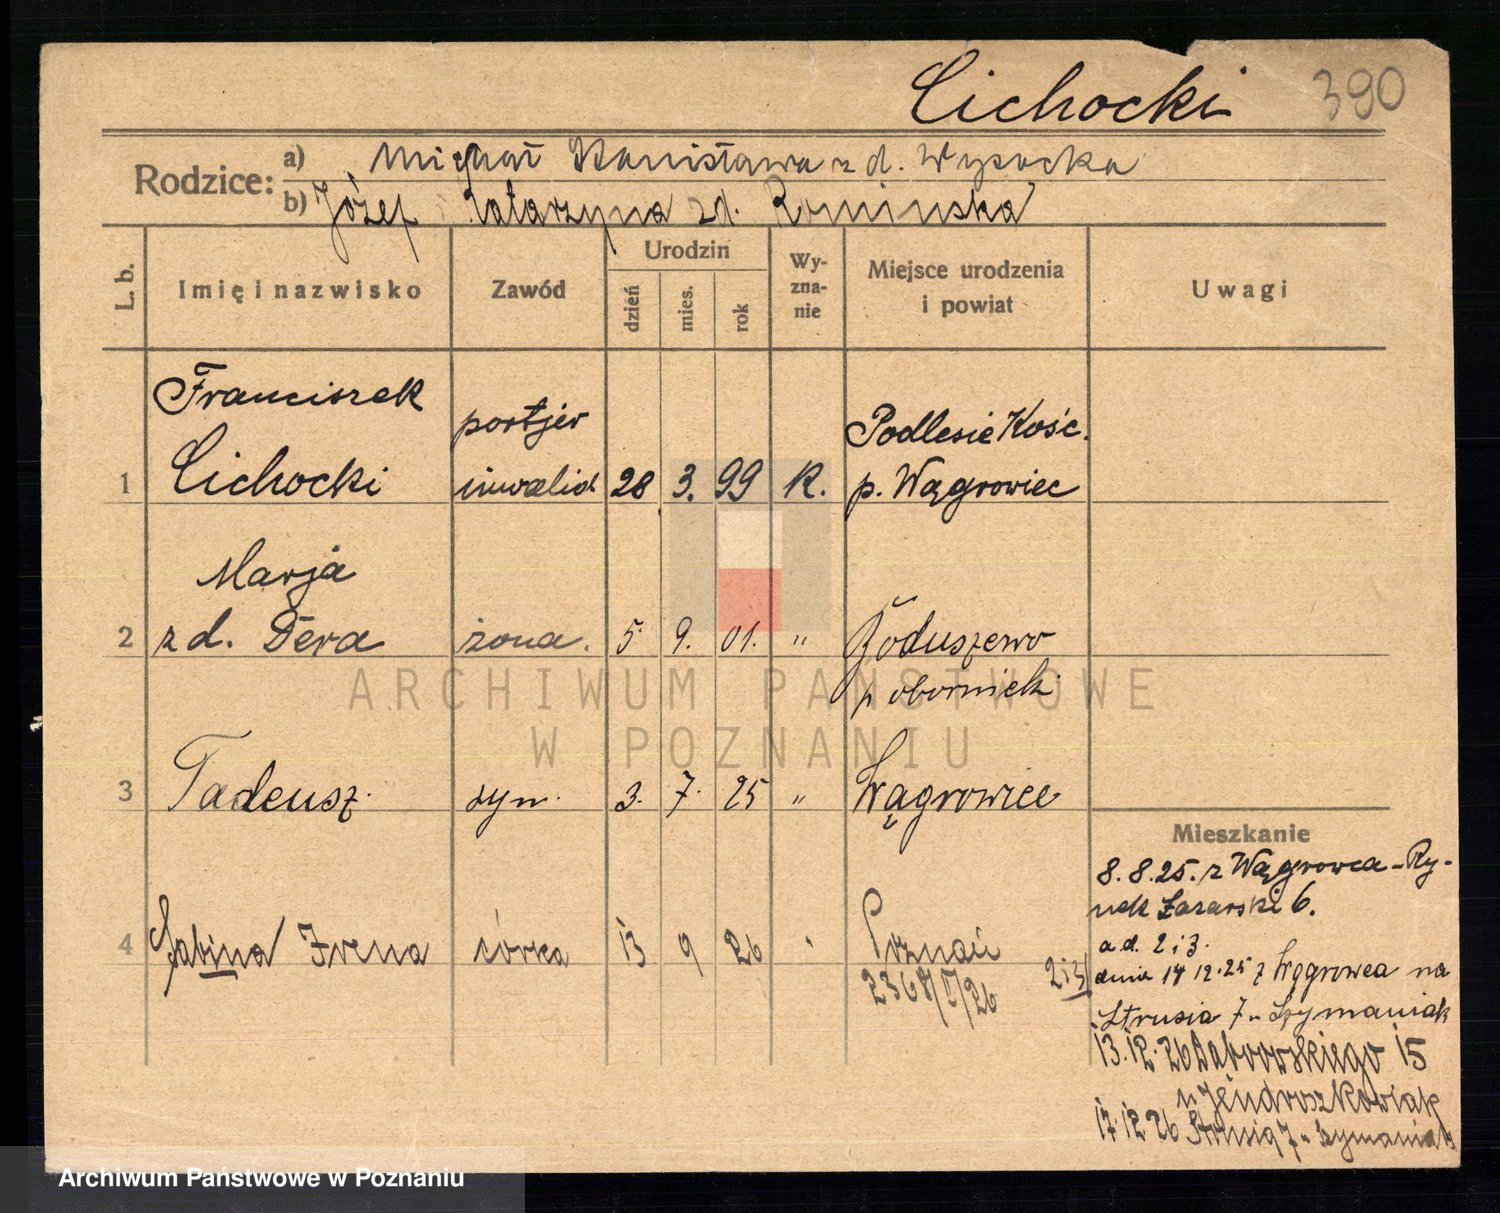 Cichocki 390
Rodzice:
a) Michał Stanisława z d. Wysocka
b) Józef Katarzyna zd. Rominska
L. b.
Imię i nazwisko
Zawód
Urodzin
dzień
mies.
rok
Wy-
zna-
nie
Miejsce urodzenia
i powiat
Uwagi
Franciszek portjer Podlesie Kośc.
1 Cichocki inwalid 28 3. 99 K. p. Wągrowiec
Marja
2 z d. Dera żona. 5. 9. 01. " Boduszewo
p obornicki
3 Tadeusz. syn. 3. 7. 25 " Wągrowiec
4 Sabina Irena córka 13 9 26 " Poznań
Mieszkanie
8.8.25. z Wągrowca - Ry-
nek Łazarski 6.
a.d. 2 i 3.
2i3/ dnia 14 12.25 z Wągrowca na
Strusia 7 u Szymaniak
13.12.26 Dąbrowskiego 15
u Jendroszkowiak
17.12 26 Strusia 7 u Szymaniak
ARCHIWUM PAŃSTWOWE
W POZNANIU
Archiwum Państwowe w Poznaniu